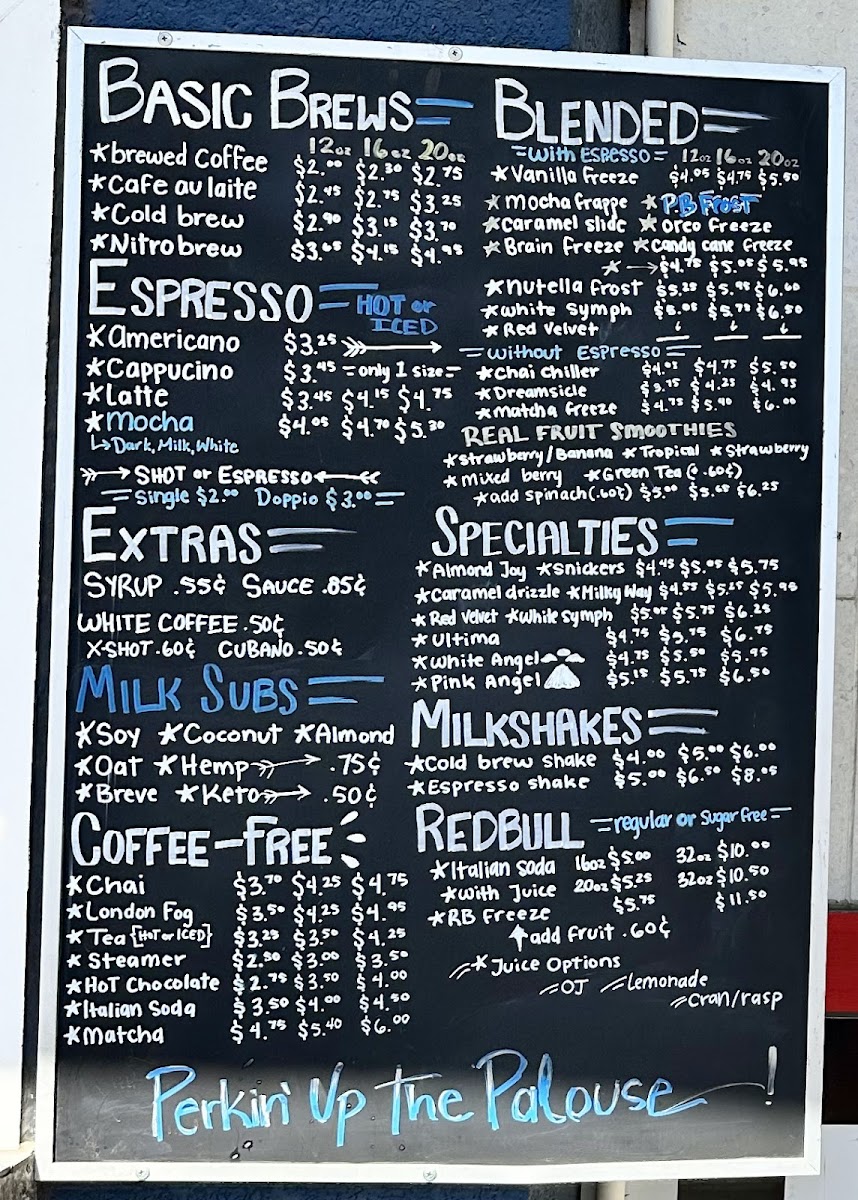 BASIC BREWS
12oz 16oz 20oz
*brewed coffee $2.00 $2.30 $2.75
*cafe au laite $2.45 $2.75 $3.25
*Cold brew $2.90 $3.15 $3.70
*Nitro brew $3.65 $4.15 $4.95
ESPRESSO HOT or ICED
*americano $3.25
*Cappucino $3.45 -only 1 size-
*Latte $3.45 $4.15 $4.75
*Mocha $4.05 $4.70 $5.30
Dark, Milk, White
SHOT or ESPRESSO
Single $2.00 Doppio $3.00
EXTRAS
SYRUP .55¢ SAUCE .85¢
WHITE COFFEE .50¢
X-SHOT .60¢ CUBANO .50¢
MILK SUBS
*Soy *Coconut *Almond
*Oat *Hemp .75¢
*Breve *Keto .50¢
COFFEE-FREE
*Chai $3.70 $4.25 $4.75
*London Fog $3.50 $4.25 $4.95
*Tea [HOT or ICED] $3.25 $3.50 $4.25
*Steamer $2.50 $3.00 $3.50
*HOT Chocolate $2.75 $3.50 $4.00
*Italian Soda $3.50 $4.00 $4.50
*Matcha $4.75 $5.40 $6.00
BLENDED
=With ESPRESSO= 12oz 16oz 20oz
*Vanilla freeze $4.05 $4.75 $5.50
*mocha frappe *PB Frost
*caramel slide *oreo freeze
*Brain freeze *candy cane freeze
* $4.75 $5.05 $5.95
*nutella frost $5.25 $5.95 $6.60
*white symph $5.05 $5.75 $6.50
*Red Velvet
=without Espresso=
*Chai chiller $4.05 $4.75 $5.50
*Dreamsicle $3.75 $4.25 $4.95
*matcha freeze $4.75 $5.40 $6.00
REAL FRUIT SMOOTHIES
*strawberry/Banana *Tropical *Strawberry
*mixed berry *Green Tea (+.60¢)
*add spinach (.60¢) $5.00 $5.65 $6.25
SPECIALTIES
*Almond Joy *Snickers $4.45 $5.05 $5.75
*Caramel drizzle *Milky Way $4.55 $5.15 $5.95
*Red Velvet *White Symph $5.05 $5.75 $6.25
*Ultima $4.75 $5.75 $6.75
*White Angel $4.75 $5.50 $5.95
*Pink Angel $5.15 $5.75 $6.50
MILKSHAKES
*Cold brew shake $4.00 $5.00 $6.00
*Espresso shake $5.00 $6.50 $8.05
REDBULL =regular or Sugar free=
*Italian Soda 16oz $5.00 32oz $10.00
*with Juice 20oz $5.25 32oz $10.50
*RB Freeze $5.75 $11.50
add fruit .60¢
*Juice Options
=OJ =Lemonade
=Cran/rasp
Perkin' Up The Palouse!